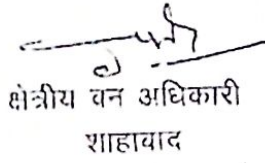 क्षेत्रीय वन अधिकारी
शाहावाद